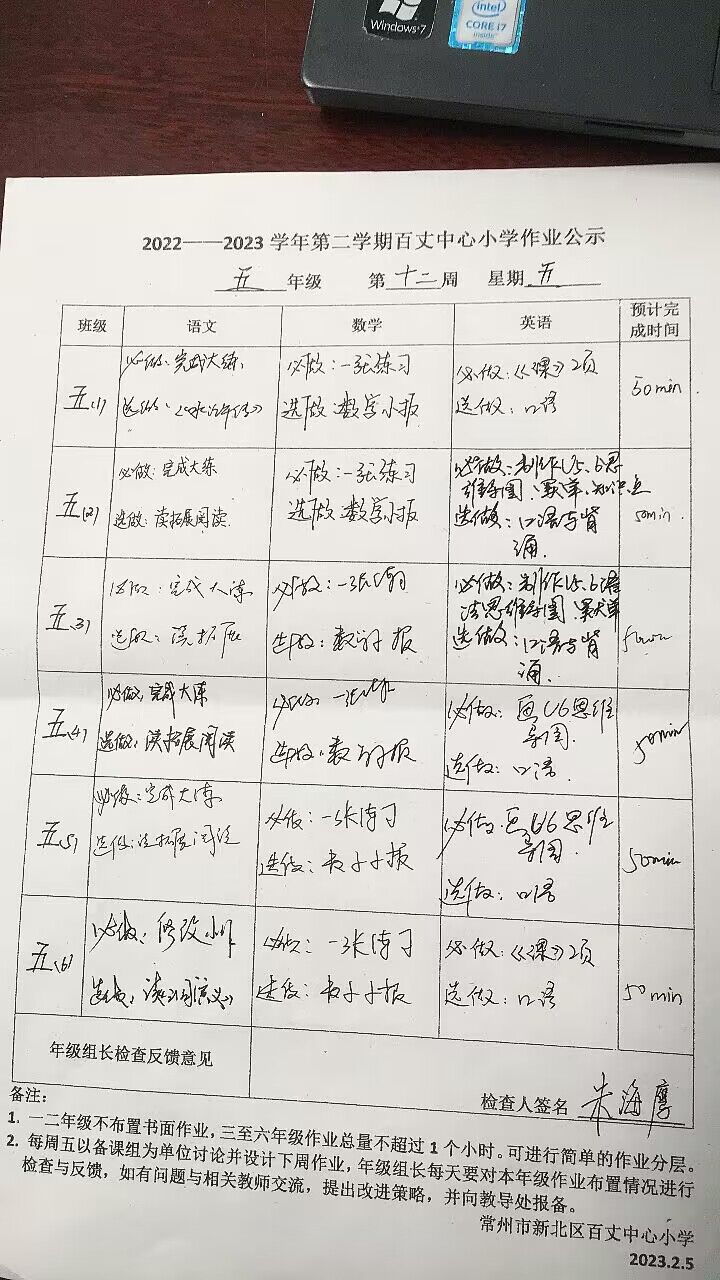 Windows 7
intel
CORE i7
inside
2022——2023 学年第二学期百丈中心小学作业公示
五 年级 第 十二 周 星期 五
班级 语文 数学 英语 预计完成时间
五(1)
必做:完成大练
选做:《水浒传》
必做:一张练习
选做:数学小报
必做:《课》2页
选做:口语
50min
五(2)
必做:完成大练
选做:读拓展阅读
必做:一张练习
选做:数学小报
必做:制作U5、6思
维导图、默单、知识点
选做:口语与背
诵.
50min
五(3)
必做:完成大练
选做:读拓展
必做:一张练习
选做:数学小报
必做:制作U5、6语
法思维导图、默单
选做:口语与背
诵.
50min
五(4)
必做:完成大练
选做:读拓展阅读
必做:一张练习
选做:数学小报
必做:画U6思维
导图.
选做:口语.
50min
五(5)
必做:完成大练
选做:读拓展阅读
必做:一张练习
选做:数学小报
必做:画U6思维
导图.
选做:口语
50min
五(6)
必做:修改小作
选做:读《三国演义》
必做:一张练习
选做:数学小报
必做:《课》2页
选做:口语
50min
年级组长检查反馈意见
检查人签名
备注:
1. 一二年级不布置书面作业,三至六年级作业总量不超过 1 个小时。可进行简单的作业分层。
2. 每周五以备课组为单位讨论并设计下周作业,年级组长每天要对本年级作业布置情况进行
检查与反馈,如有问题与相关教师交流,提出改进策略,并向教导处报备。
常州市新北区百丈中心小学
2023.2.5